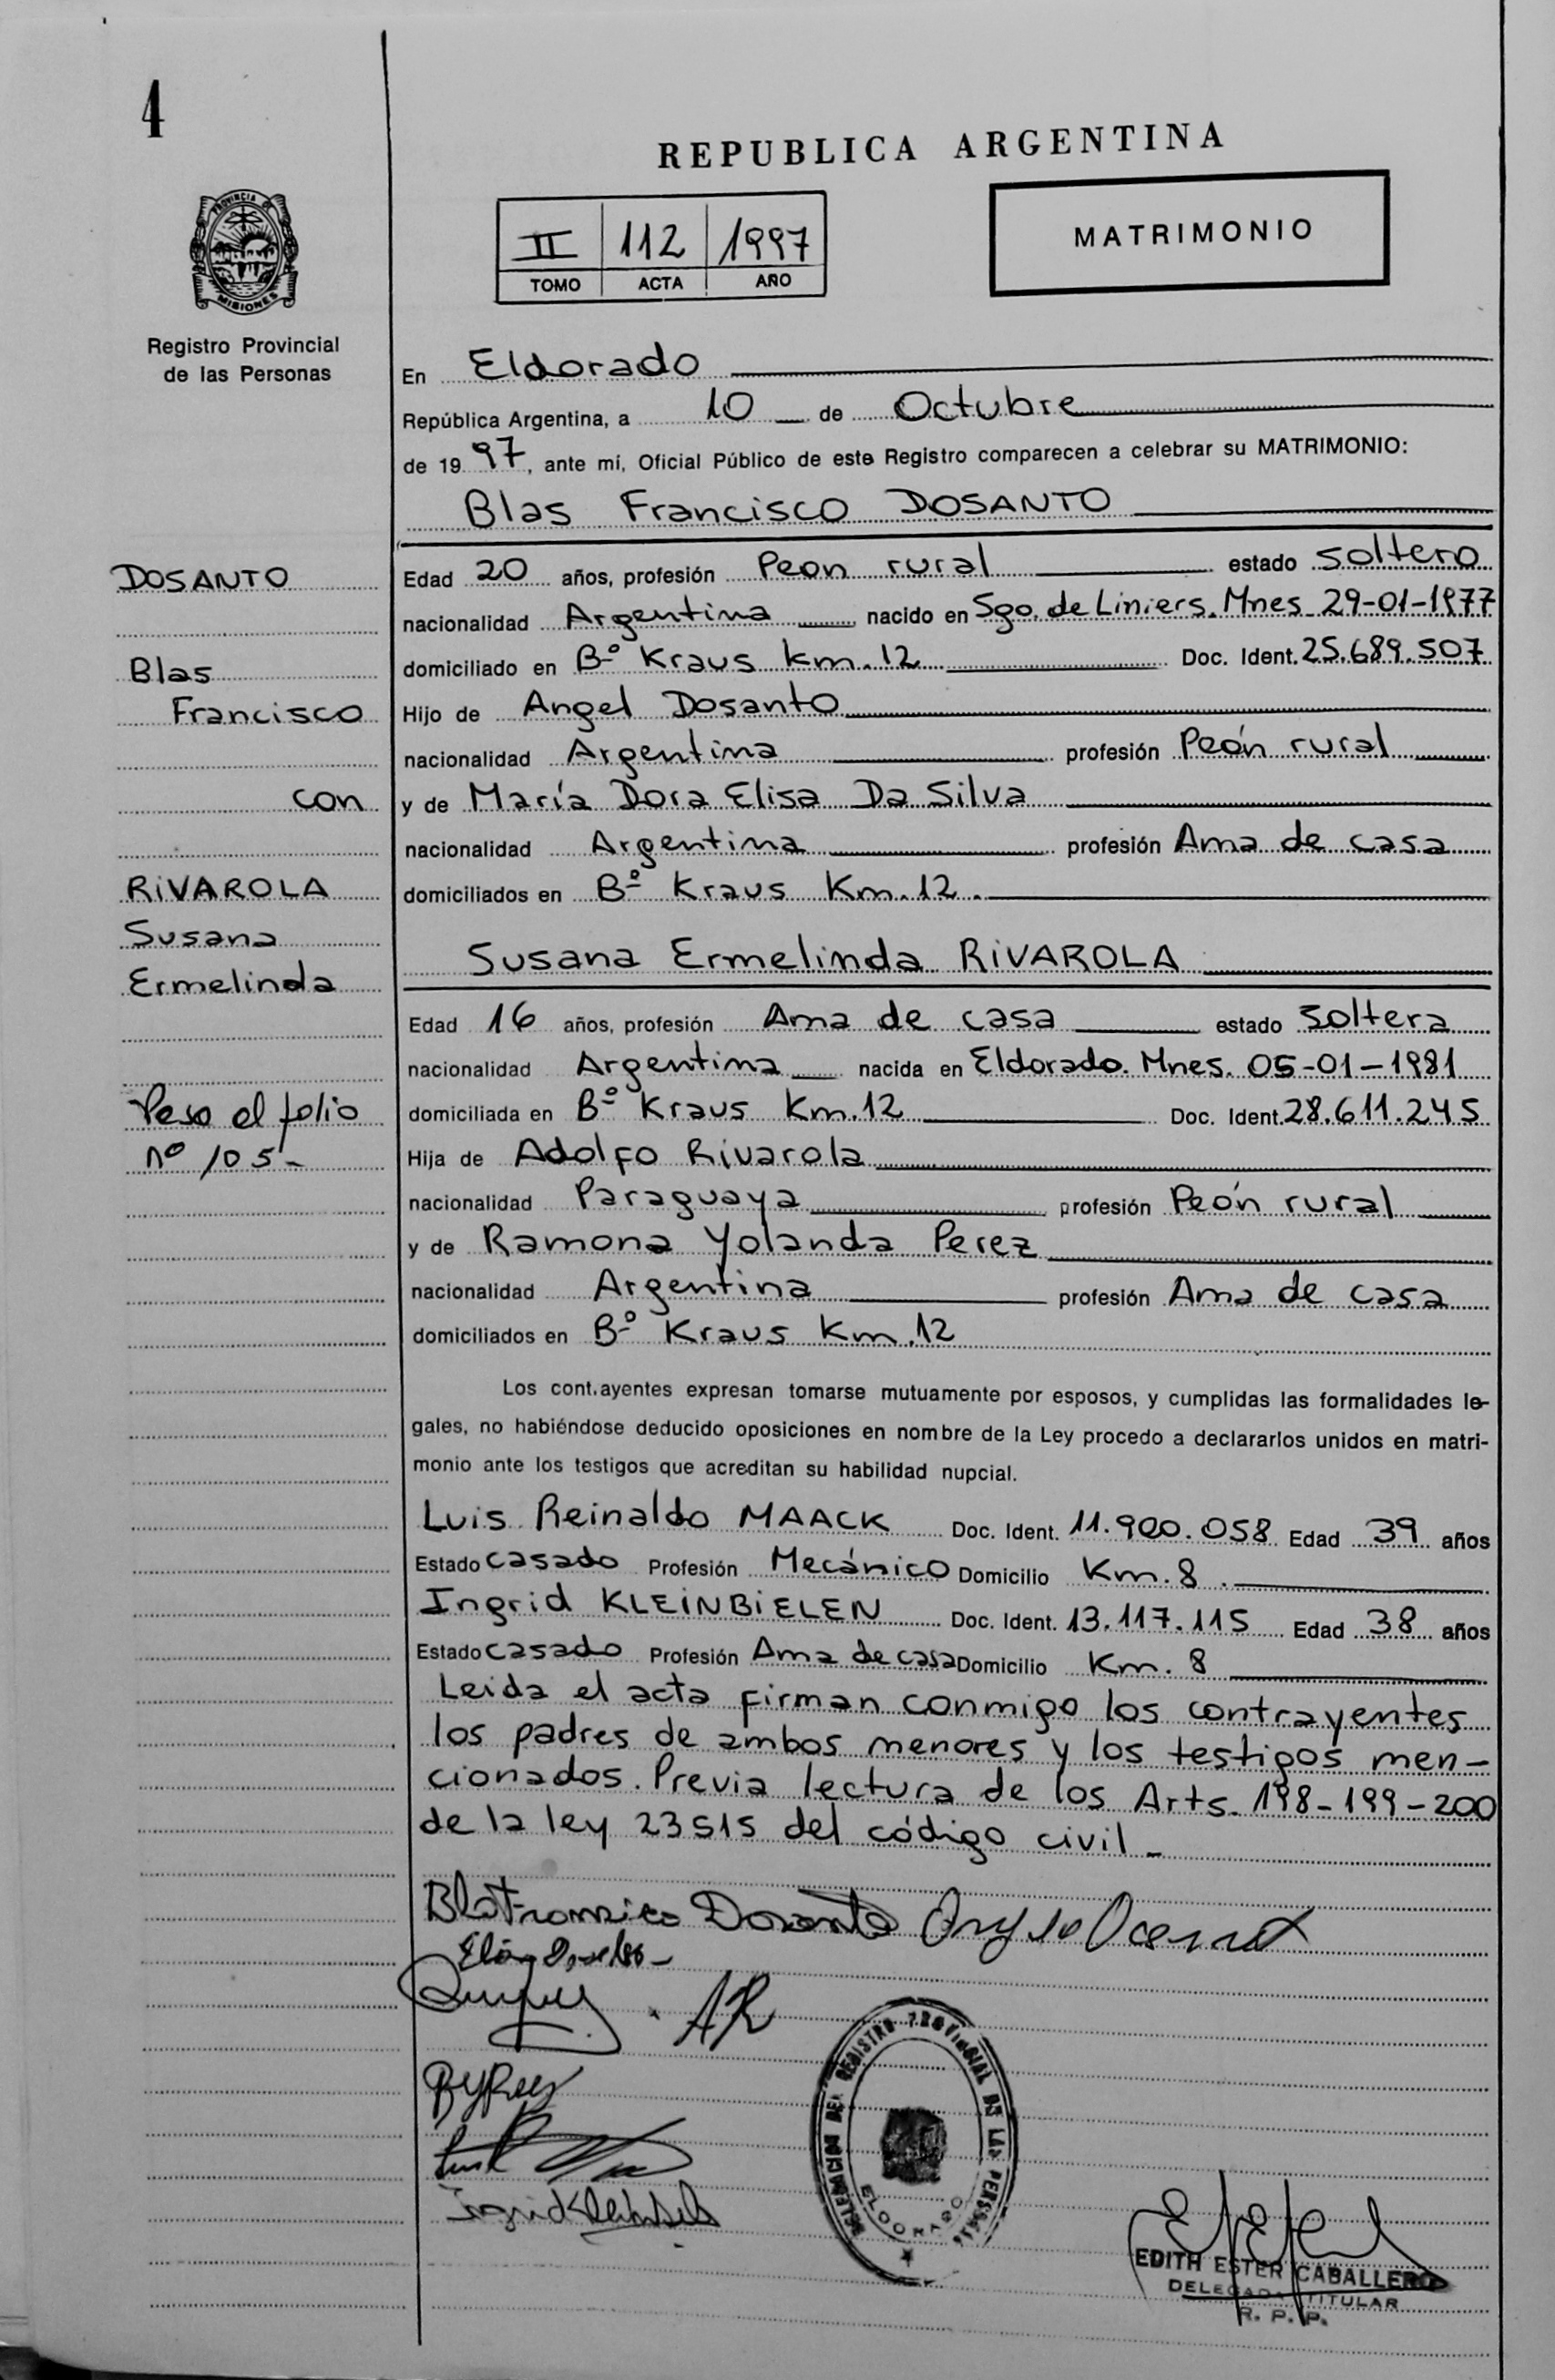 4
REPUBLICA ARGENTINA
PROVINCIA DE
MISIONES
II 112 1997
TOMO ACTA AÑO
MATRIMONIO
Registro Provincial
de las Personas
En Eldorado
República Argentina, a 10 de Octubre
de 1997, ante mí, Oficial Público de este Registro comparecen a celebrar su MATRIMONIO:
Blas Francisco DOSANTO
DOSANTO
Blas
Francisco
con
RIVAROLA
Susana
Ermelinda
Pasa al folio
nº 105-
Edad 20 años, profesión Peon rural estado soltero
nacionalidad Argentina nacido en Sgo. de Liniers. Mnes 29-01-1977
domiciliado en Bº Kraus km.12 Doc. Ident. 25.689.507
Hijo de Angel Dosanto
nacionalidad Argentina profesión Peón rural
y de María Dora Elisa Da Silva
nacionalidad Argentina profesión Ama de casa
domiciliados en Bº Kraus Km.12.
Susana Ermelinda RIVAROLA
Edad 16 años, profesión Ama de casa estado soltera
nacionalidad Argentina nacida en Eldorado. Mnes. 05-01-1981
domiciliada en Bº Kraus Km.12 Doc. Ident. 28.611.245
Hija de Adolfo Rivarola
nacionalidad Paraguaya profesión Peón rural
y de Ramona Yolanda Perez
nacionalidad Argentina profesión Ama de casa
domiciliados en Bº Kraus Km.12
Los cont.ayentes expresan tomarse mutuamente por esposos, y cumplidas las formalidades le-
gales, no habiéndose deducido oposiciones en nombre de la Ley procedo a declararlos unidos en matri-
monio ante los testigos que acreditan su habilidad nupcial.
Luis Reinaldo MAACK Doc. Ident. 11.900.058 Edad 39 años
Estado casado Profesión Mecánico Domicilio Km. 8.
Ingrid KLEINBIELEN Doc. Ident. 13.117.115 Edad 38 años
Estado casado Profesión Ama de casa Domicilio Km. 8
Leida el acta firman conmigo los contrayentes
los padres de ambos menores y los testigos men-
cionados. Previa lectura de los Arts. 198-199-200
de la ley 23515 del código civil -
AR
DELEGACION DEL REGISTRO PROVINCIAL DE LAS PERSONAS
ELDORADO
EDITH ESTER CABALLERO
DELEGADA TITULAR
R. P. P.